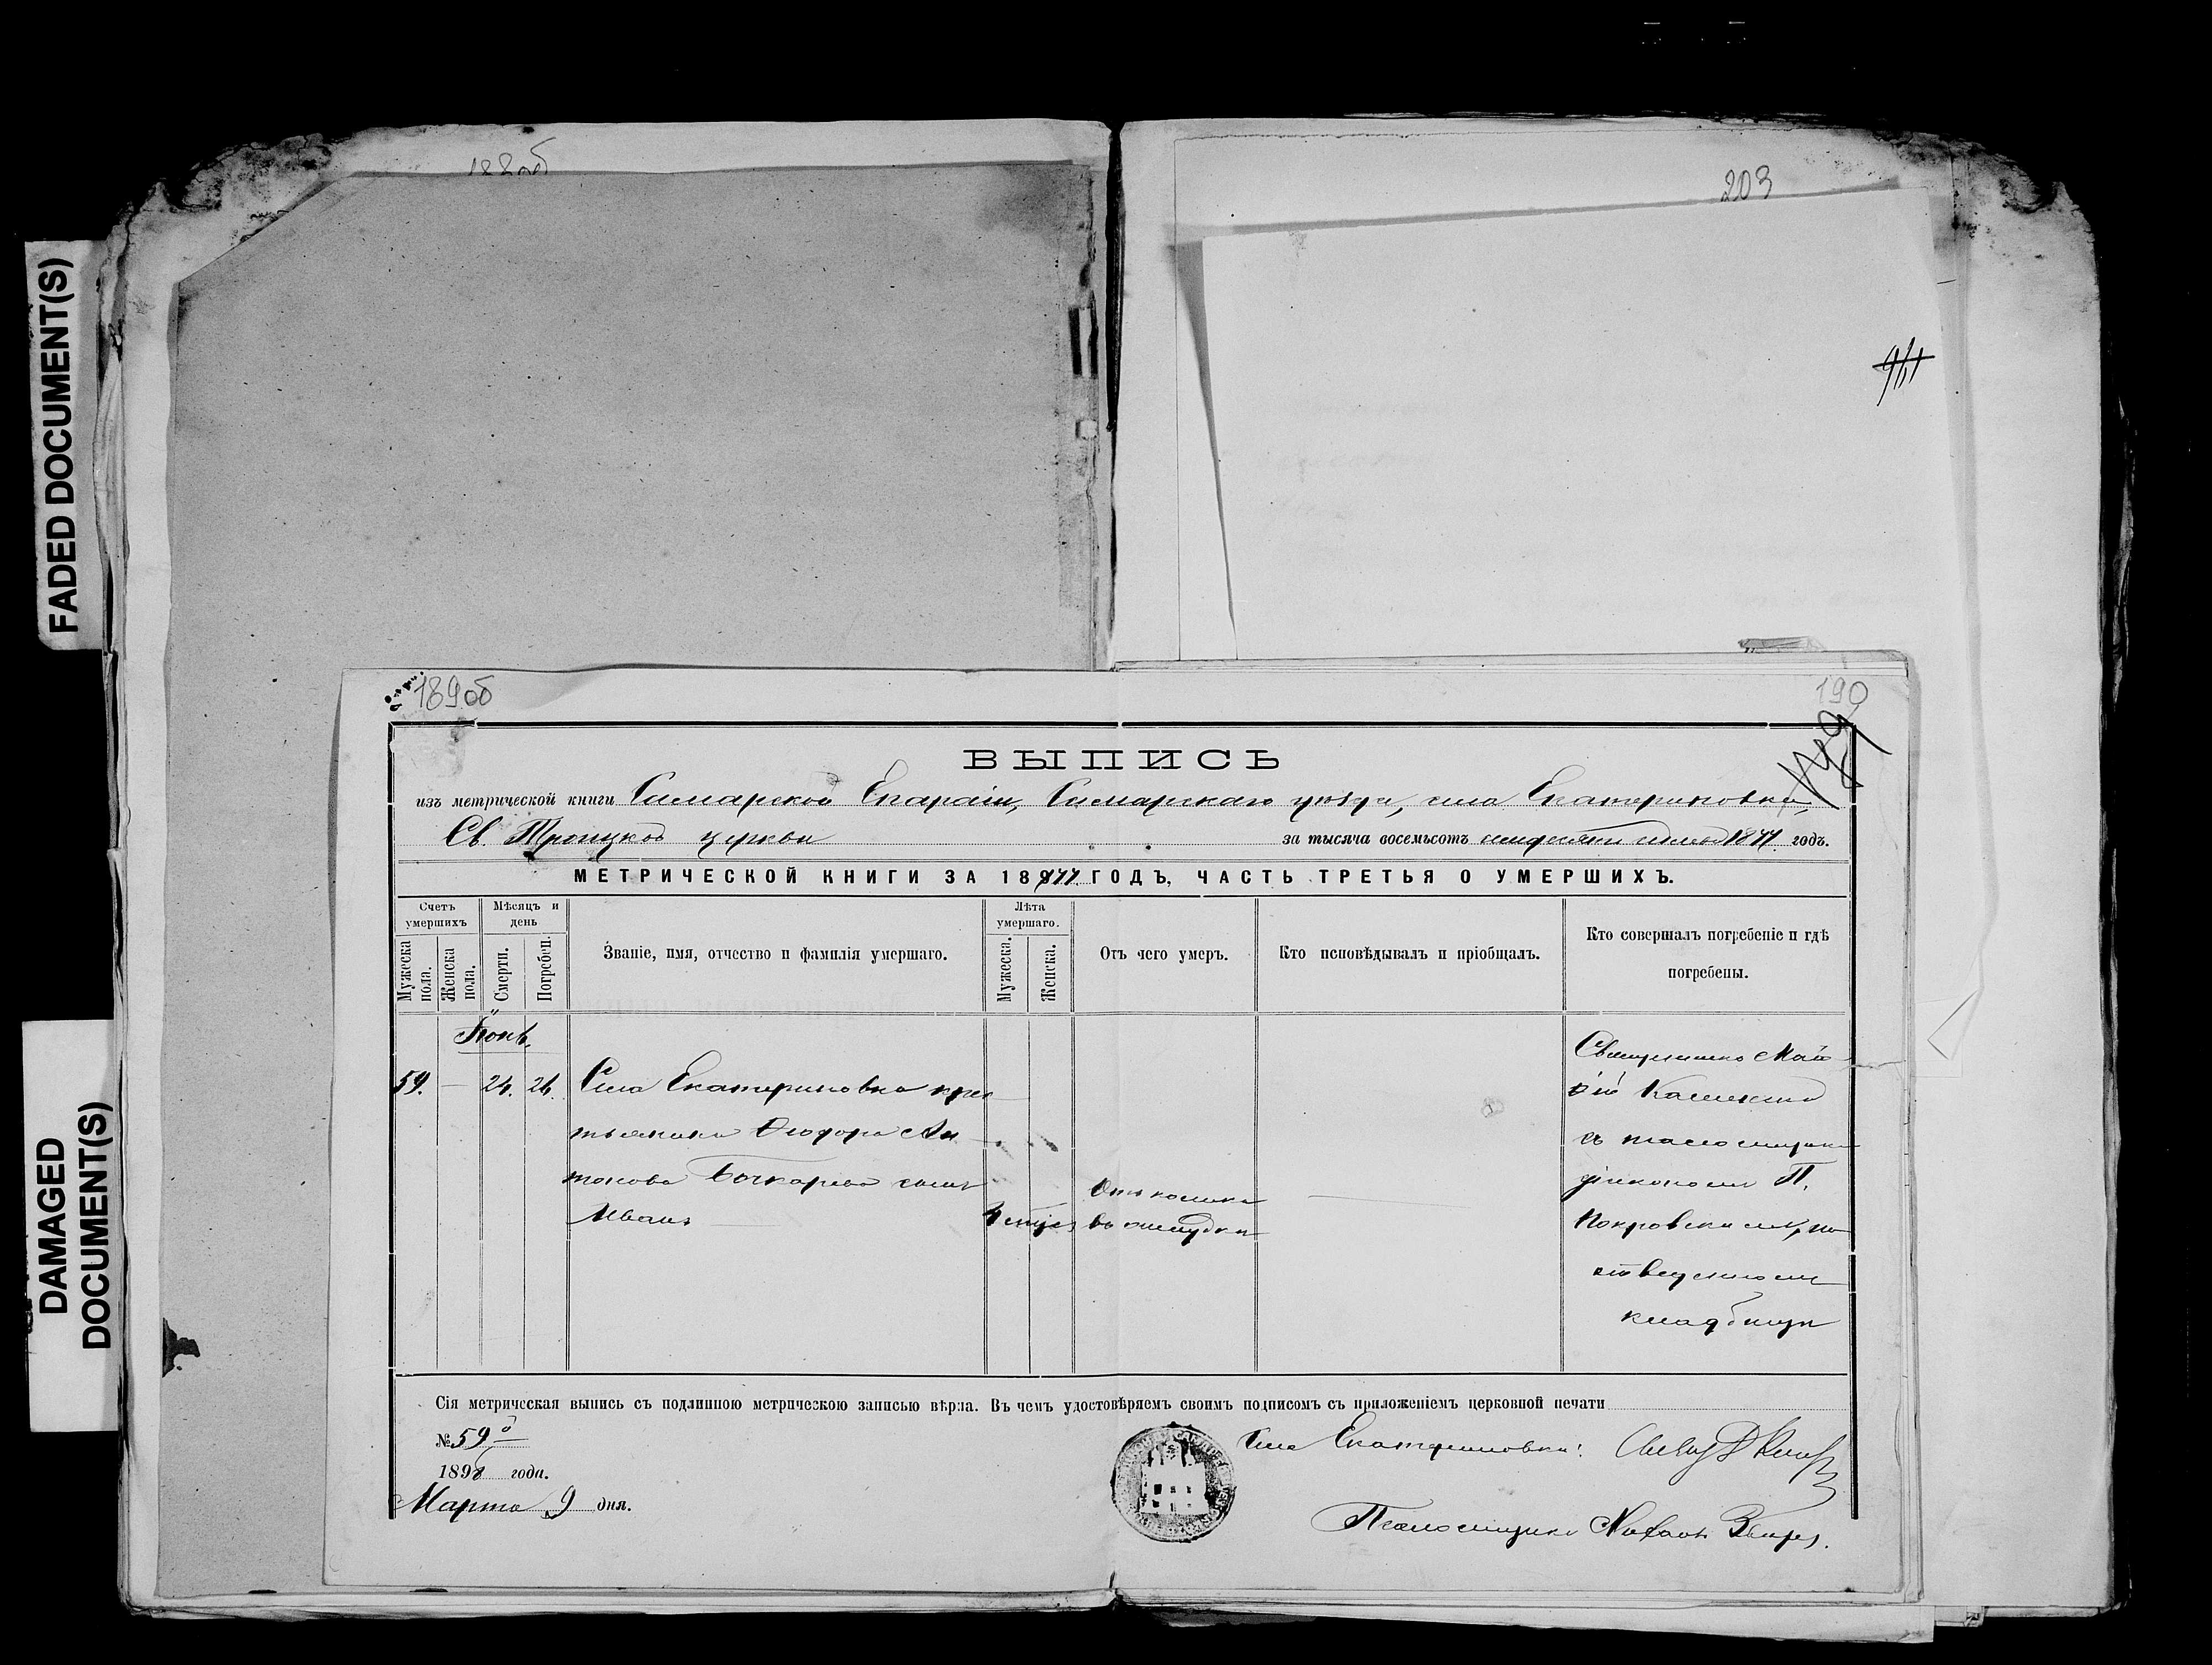 188об
203
FADED DOCUMENT(S)
DAMAGED
DOCUMENT(S)
189об
190
ВЫПИСЬ
изъ метрической книги Самарской Епархіи, Самарскаго уѣзда, села Екатериновки,
Св. Троицкой церкви за тысяча восемьсотъ семьдесятъ 1877 годъ.
МЕТРИЧЕСКОЙ КНИГИ ЗА 1877 ГОДЪ, ЧАСТЬ ТРЕТЬЯ О УМЕРШИХЪ.
Счетъ умершихъ
Мужеска пола.
Женска пола.
Мѣсяцъ и день
Смерти.
Погребен.
Званіе, имя, отчество и фамилія умершаго.
Лѣта умершаго.
Мужеска.
Женска.
Отъ чего умеръ.
Кто исповѣдывалъ и пріобщалъ.
Кто совершалъ погребеніе и гдѣ погребены.
59. — 24. 26.
Села Екатериновки крес
тьянина Ѳеодора Ан
тонова Бочкарева сынъ
Иванъ
Отъ колики
въ желудкѣ
Священникъ
съ псаломщикомъ
діакономъ П.
Покровскимъ, на
отведенномъ
кладбищѣ
Сія метрическая выпись съ подлинною метрическою записью вѣрна. Въ чемъ удостовѣряемъ своимъ подписомъ съ приложеніемъ церковной печати
№ 59
1898 года.
Марта 9 дня.
Села Екатериновки:
Псаломщикъ